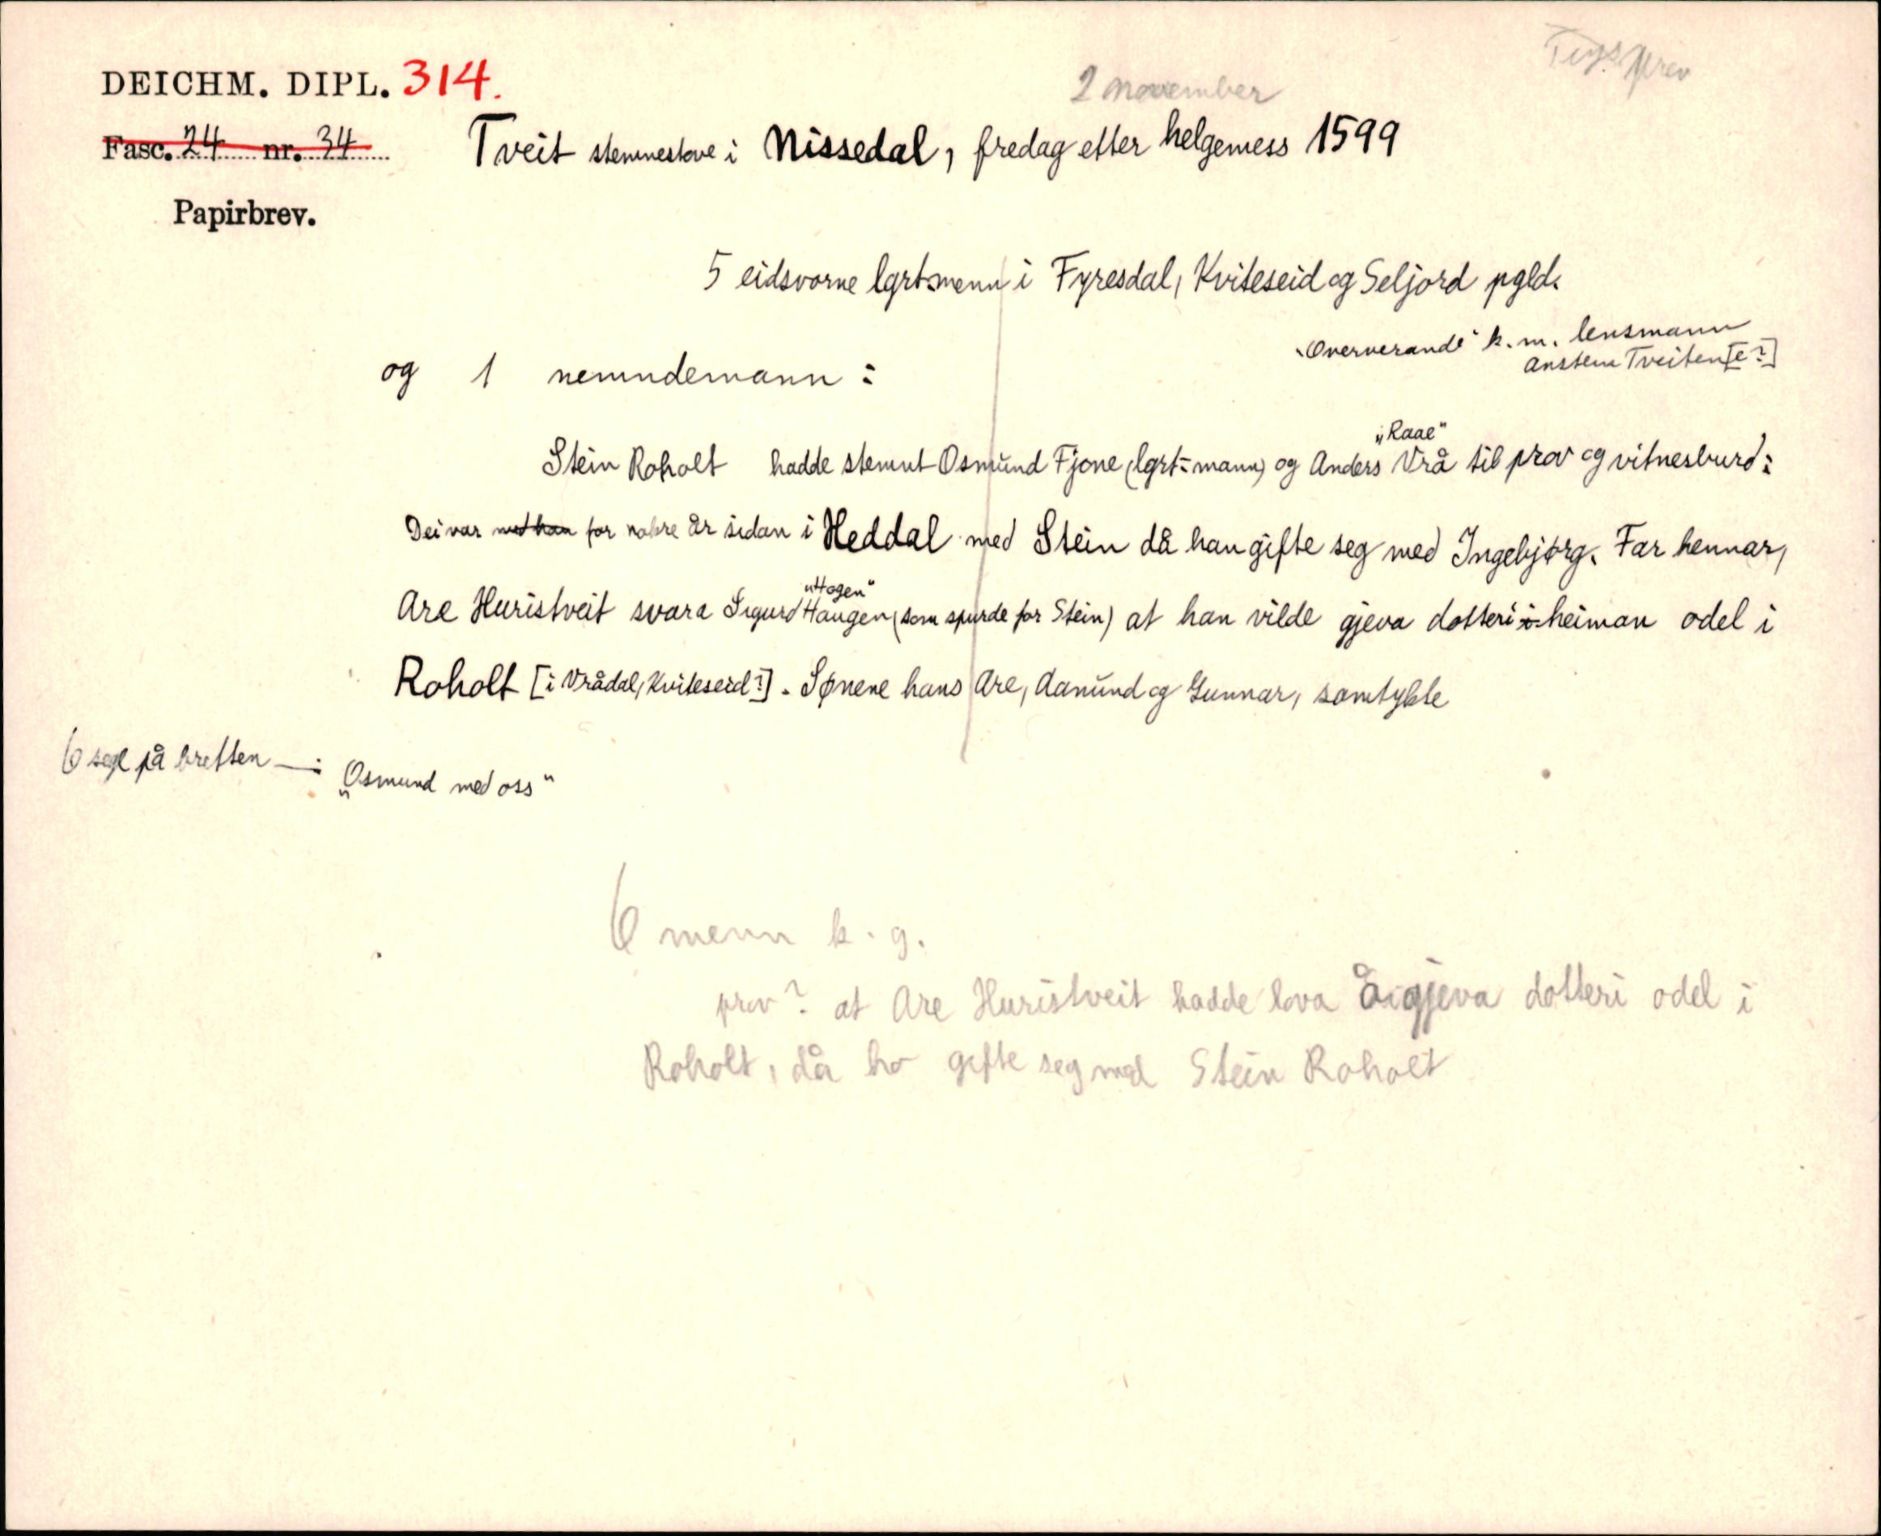 DEICHM. DIPL. 314.
2 november
Fasc. 24 nr. 34
Tveit stemnestove i Nissedal, fredag etter helgemess 1599
Papirbrev.
5 eidsvorne lgrt.menn i Fyresdal, Kviteseid og Seljord pgld.
"Oververande" k. m. lensmann
Anstein Tveiten[e?]
og 1 nemndemann:
"Raae"
Stein Roholt hadde stemnt Osmund Fjone (lgrt-mann) og Anders Vrå til prov og vitnesburd:
Dei var med han for nokre år sidan i Heddal med Stein då han gifte seg med Ingebjørg. Far hennar,
"Hogen"
Are Huristveit svara Sigurd Haugen (som spurde for Stein) at han vilde gjeva dotteri i heiman odel i
Roholt [i Vrådal, Kviteseid?]. Sønene hans Are, Aanund og Gunnar, samtykte
6 segl på bretten —: "Osmund med oss"
6 menn k. g.
prov? at Are Huristveit hadde lova å gjeva dotteri odel i
Roholt, då ho gifte seg med Stein Roholt